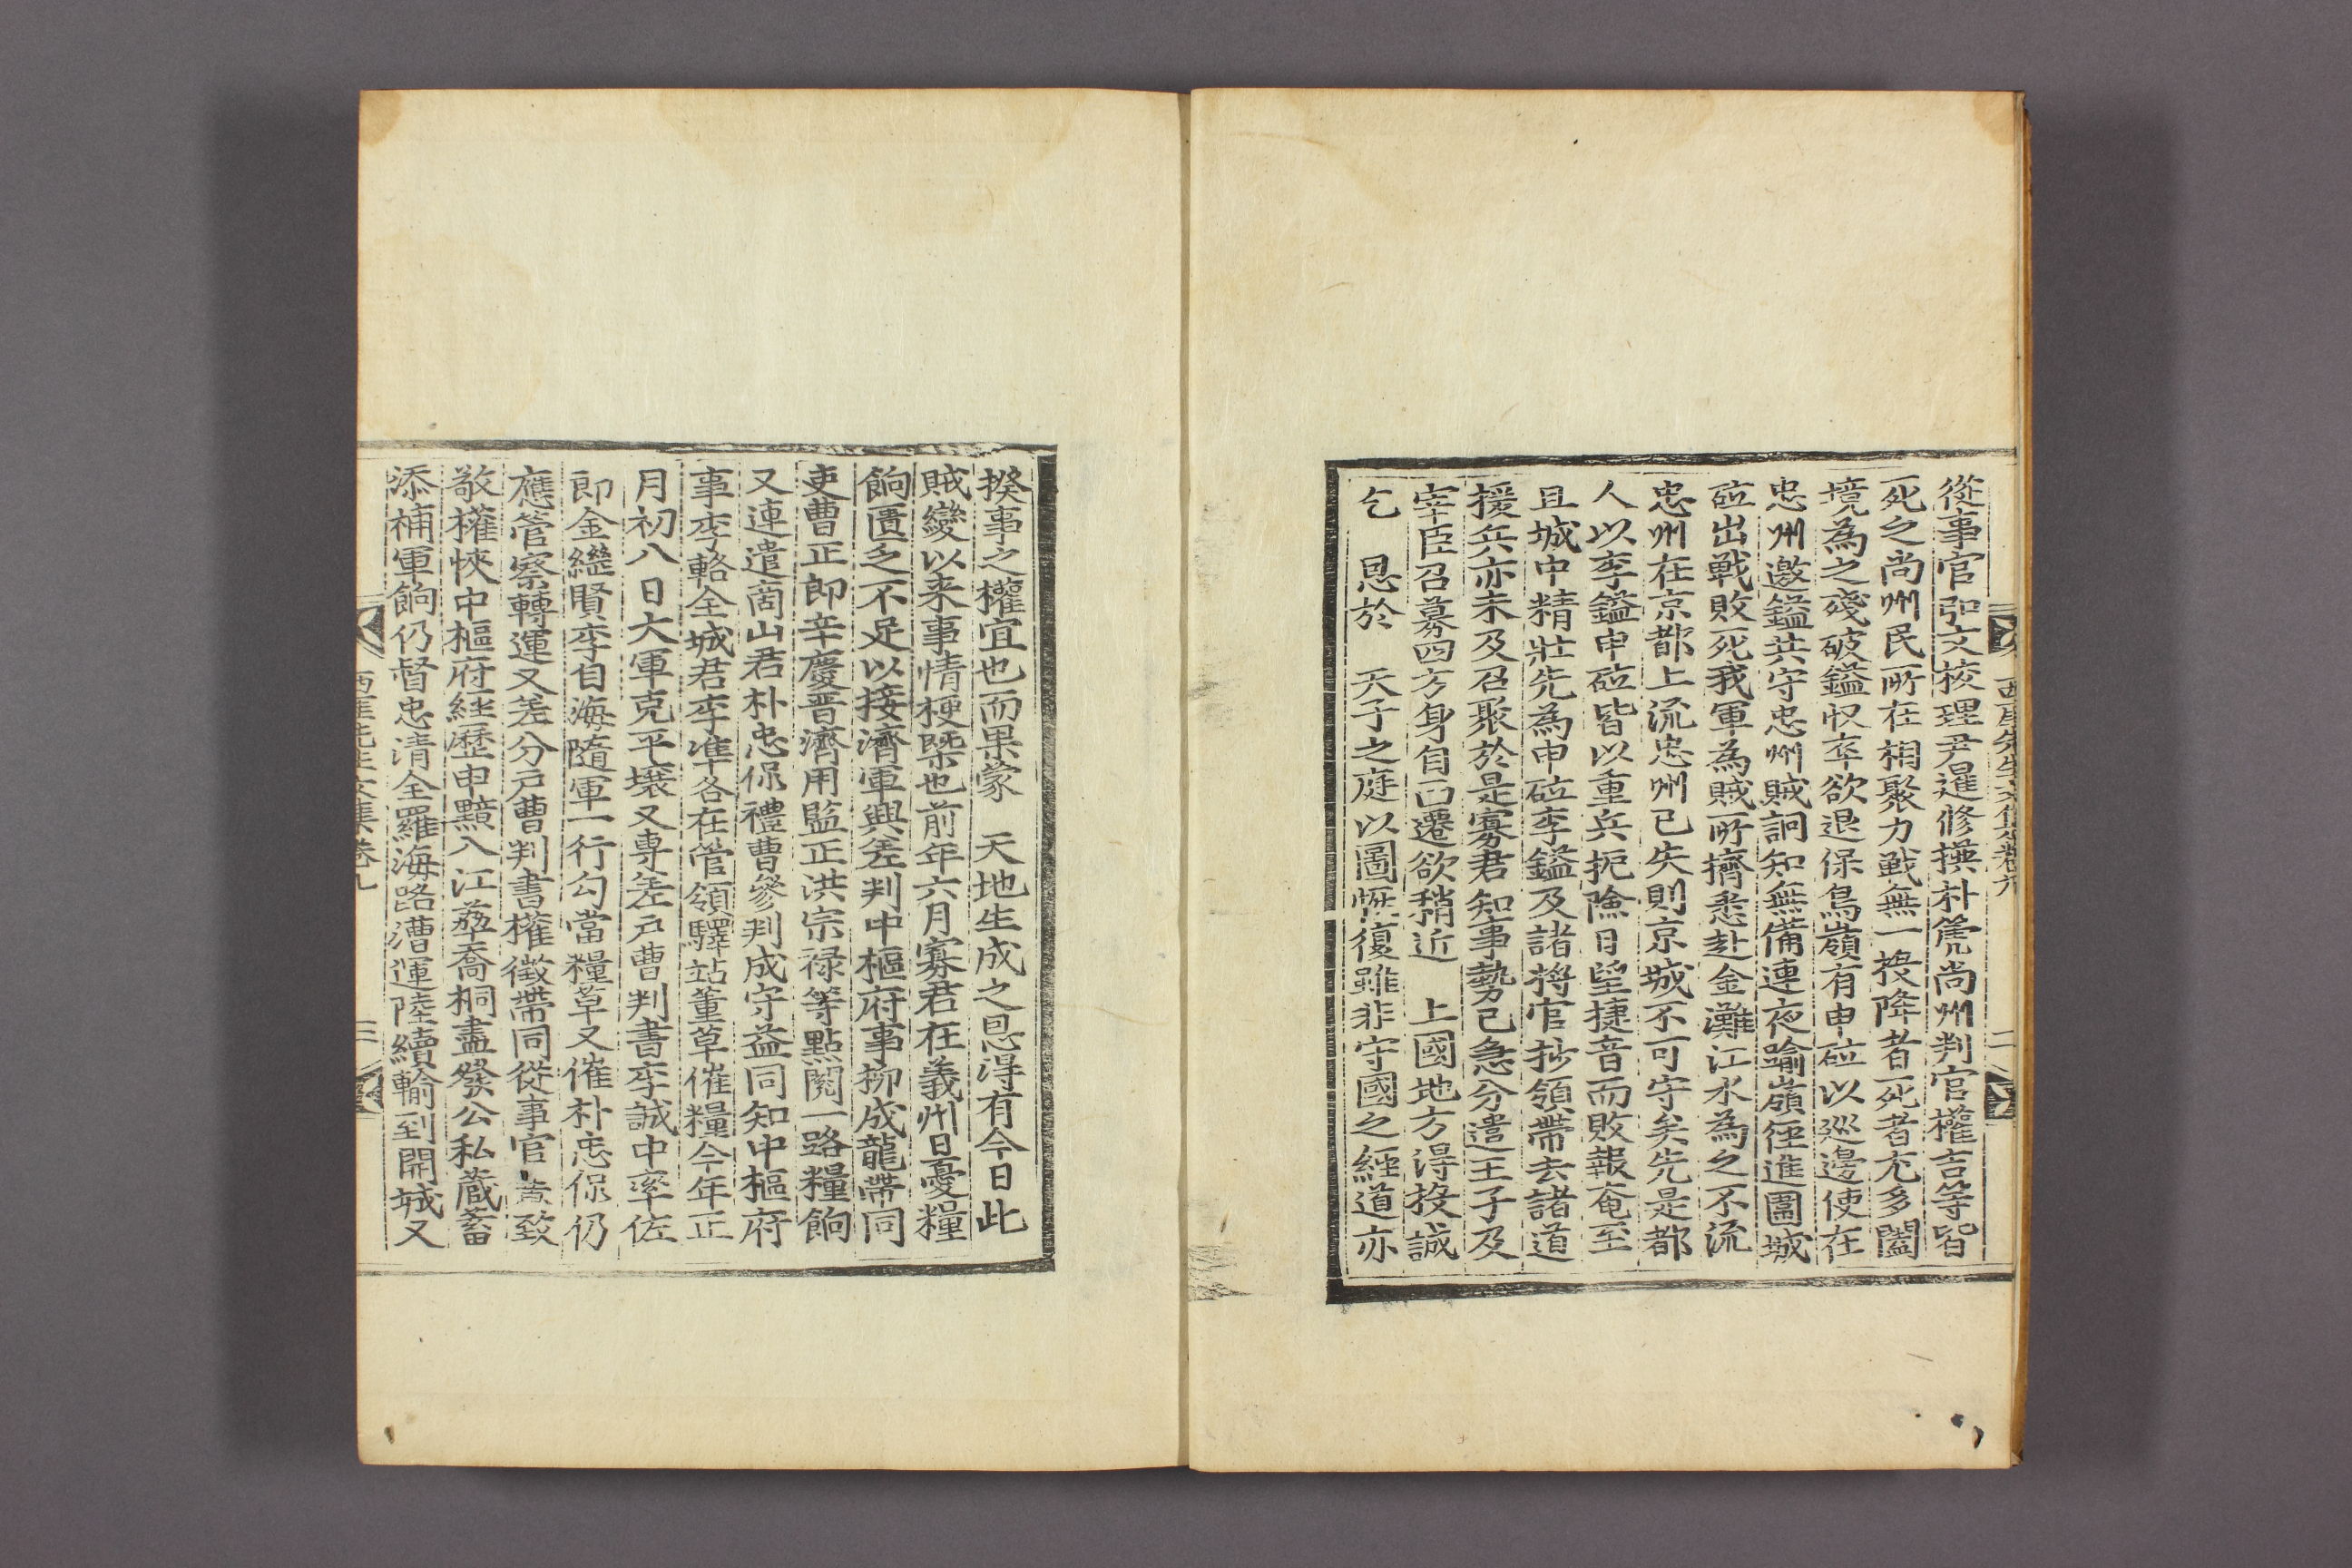 從事官弘文校理尹暹修撰朴箎尙州判官權吉等皆
死之尙州民所在相聚力戰無一投降者死者尤多闔
境爲之殘破鎰收卒欲退保鳥嶺有申砬以巡邊使在
忠州邀鎰共守忠州賊詗知無備連夜踰嶺徑進圍城
砬出戰敗死我軍爲賊所擠悉赴金灘江水爲之不流
忠州在京都上流忠州已失則京城不可守矣先是都
人以李鎰申砬皆以重兵扼險日望捷音而敗報奄至
且城中精壯先爲申砬李鎰及諸將官抄領帶去諸道
援兵亦未及召聚於是寡君知事勢已急分遣王子及
宰臣召募四方身自西遷欲稍近 上國地方得投誠
乞 恩於 天子之庭以圖恢復雖非守國之經道亦
西厓先生文集卷九 二
揆事之權宜也而果蒙 天地生成之恩得有今日此
賊變以来事情梗槩也前年六月寡君在義州日憂糧
餉匱乏不足以接濟軍興差判中樞府事柳成龍帶同
吏曹正郞辛慶晋濟用監正洪宗祿等點閱一路糧餉
又連遣商山君朴忠侃禮曹參判成守益同知中樞府
事李輅全城君李準各在管領驛站董草催糧今年正
月初八日大軍克平壤又專差戶曹判書李誠中率佐
郎金繼賢李自海隨軍一行勾當糧草又催朴忠侃仍
應管察轉運又差分戶曹判書權徵帶同從事官黃致
敬權悏中樞府經歷申黯入江華喬桐盡發公私蔵蓄
添補軍餉仍督忠清全羅海路漕運陸續輸到開城又
西厓先生文集卷九 三